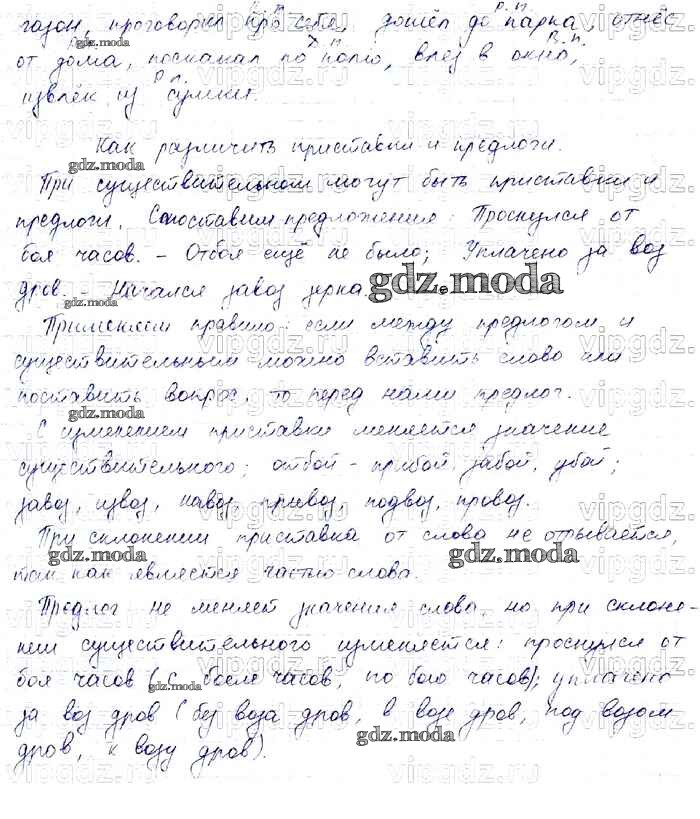 газон, проговорил про себя, дошёл до парка, отнёс
от дома, поскакал по полю, влез в окно,
извлёк из сумки.
Как различить приставки и предлоги.
При существительном могут быть приставки и
предлоги. Сопоставим предложения: Проснулся от
боя часов. - Отбоя ещё не было; Уплачено за воз
дров. - Начался завоз зерна.
Применяем правило: если между предлогом и
существительным можно вставить слово или
поставить вопрос, то перед нами предлог.
С изменением приставки меняется значение
существительного: отбой - прибой, забой, убой;
завоз, извоз, навоз, привоз, подвоз, провоз.
При склонении приставка от слова не отрывается,
так как является частью слова.
Предлог не меняет значения слова, но при склоне-
нии существительного изменяется: проснулся от
боя часов (с боем часов, по бою часов); уплачено
за воз дров (без воза дров, в возе дров, под возом
дров, к возу дров).
gdz.moda
gdz.moda
gdz.moda
gdz.moda
gdz.moda
gdz.moda
gdz.moda
gdz.moda
vipgdz.ru